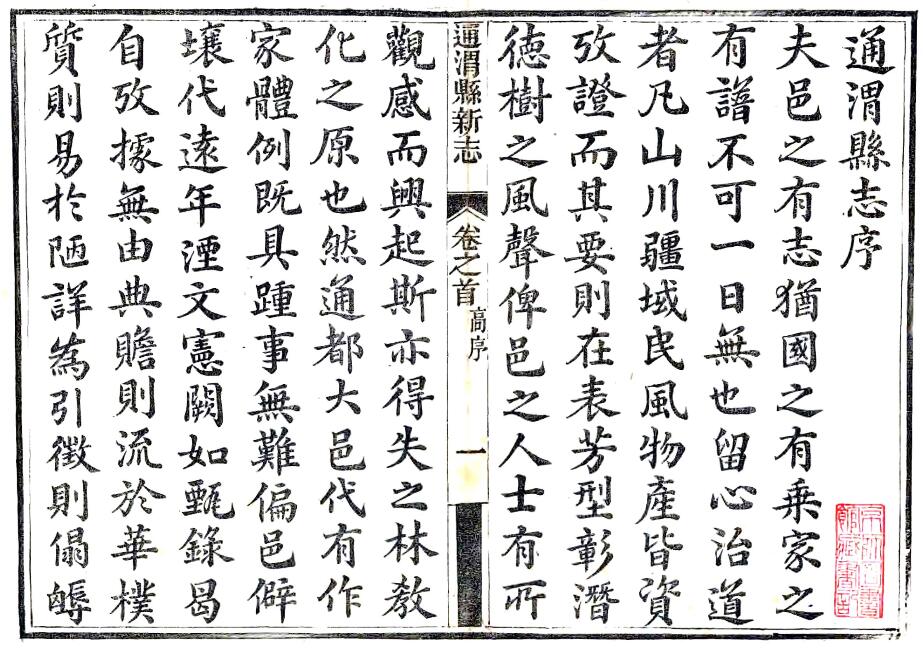 通渭縣志序
夫邑之有志猶國之有乘家之
有譜不可一日無也留心治道
者凡山川疆域民風物產皆資
攷證而其要則在表芳型彰潛
德樹之風聲俾邑之人士有所
通渭縣新志 卷之首 高序 一
觀感而興起斯亦得失之林教
化之原也然通都大邑代有作
家體例既具踵事無難偏邑僻
壤代遠年湮文憲闕如甄錄曷
自攷據無由典贍則流於華樸
質則易於陋詳為引徵則傷